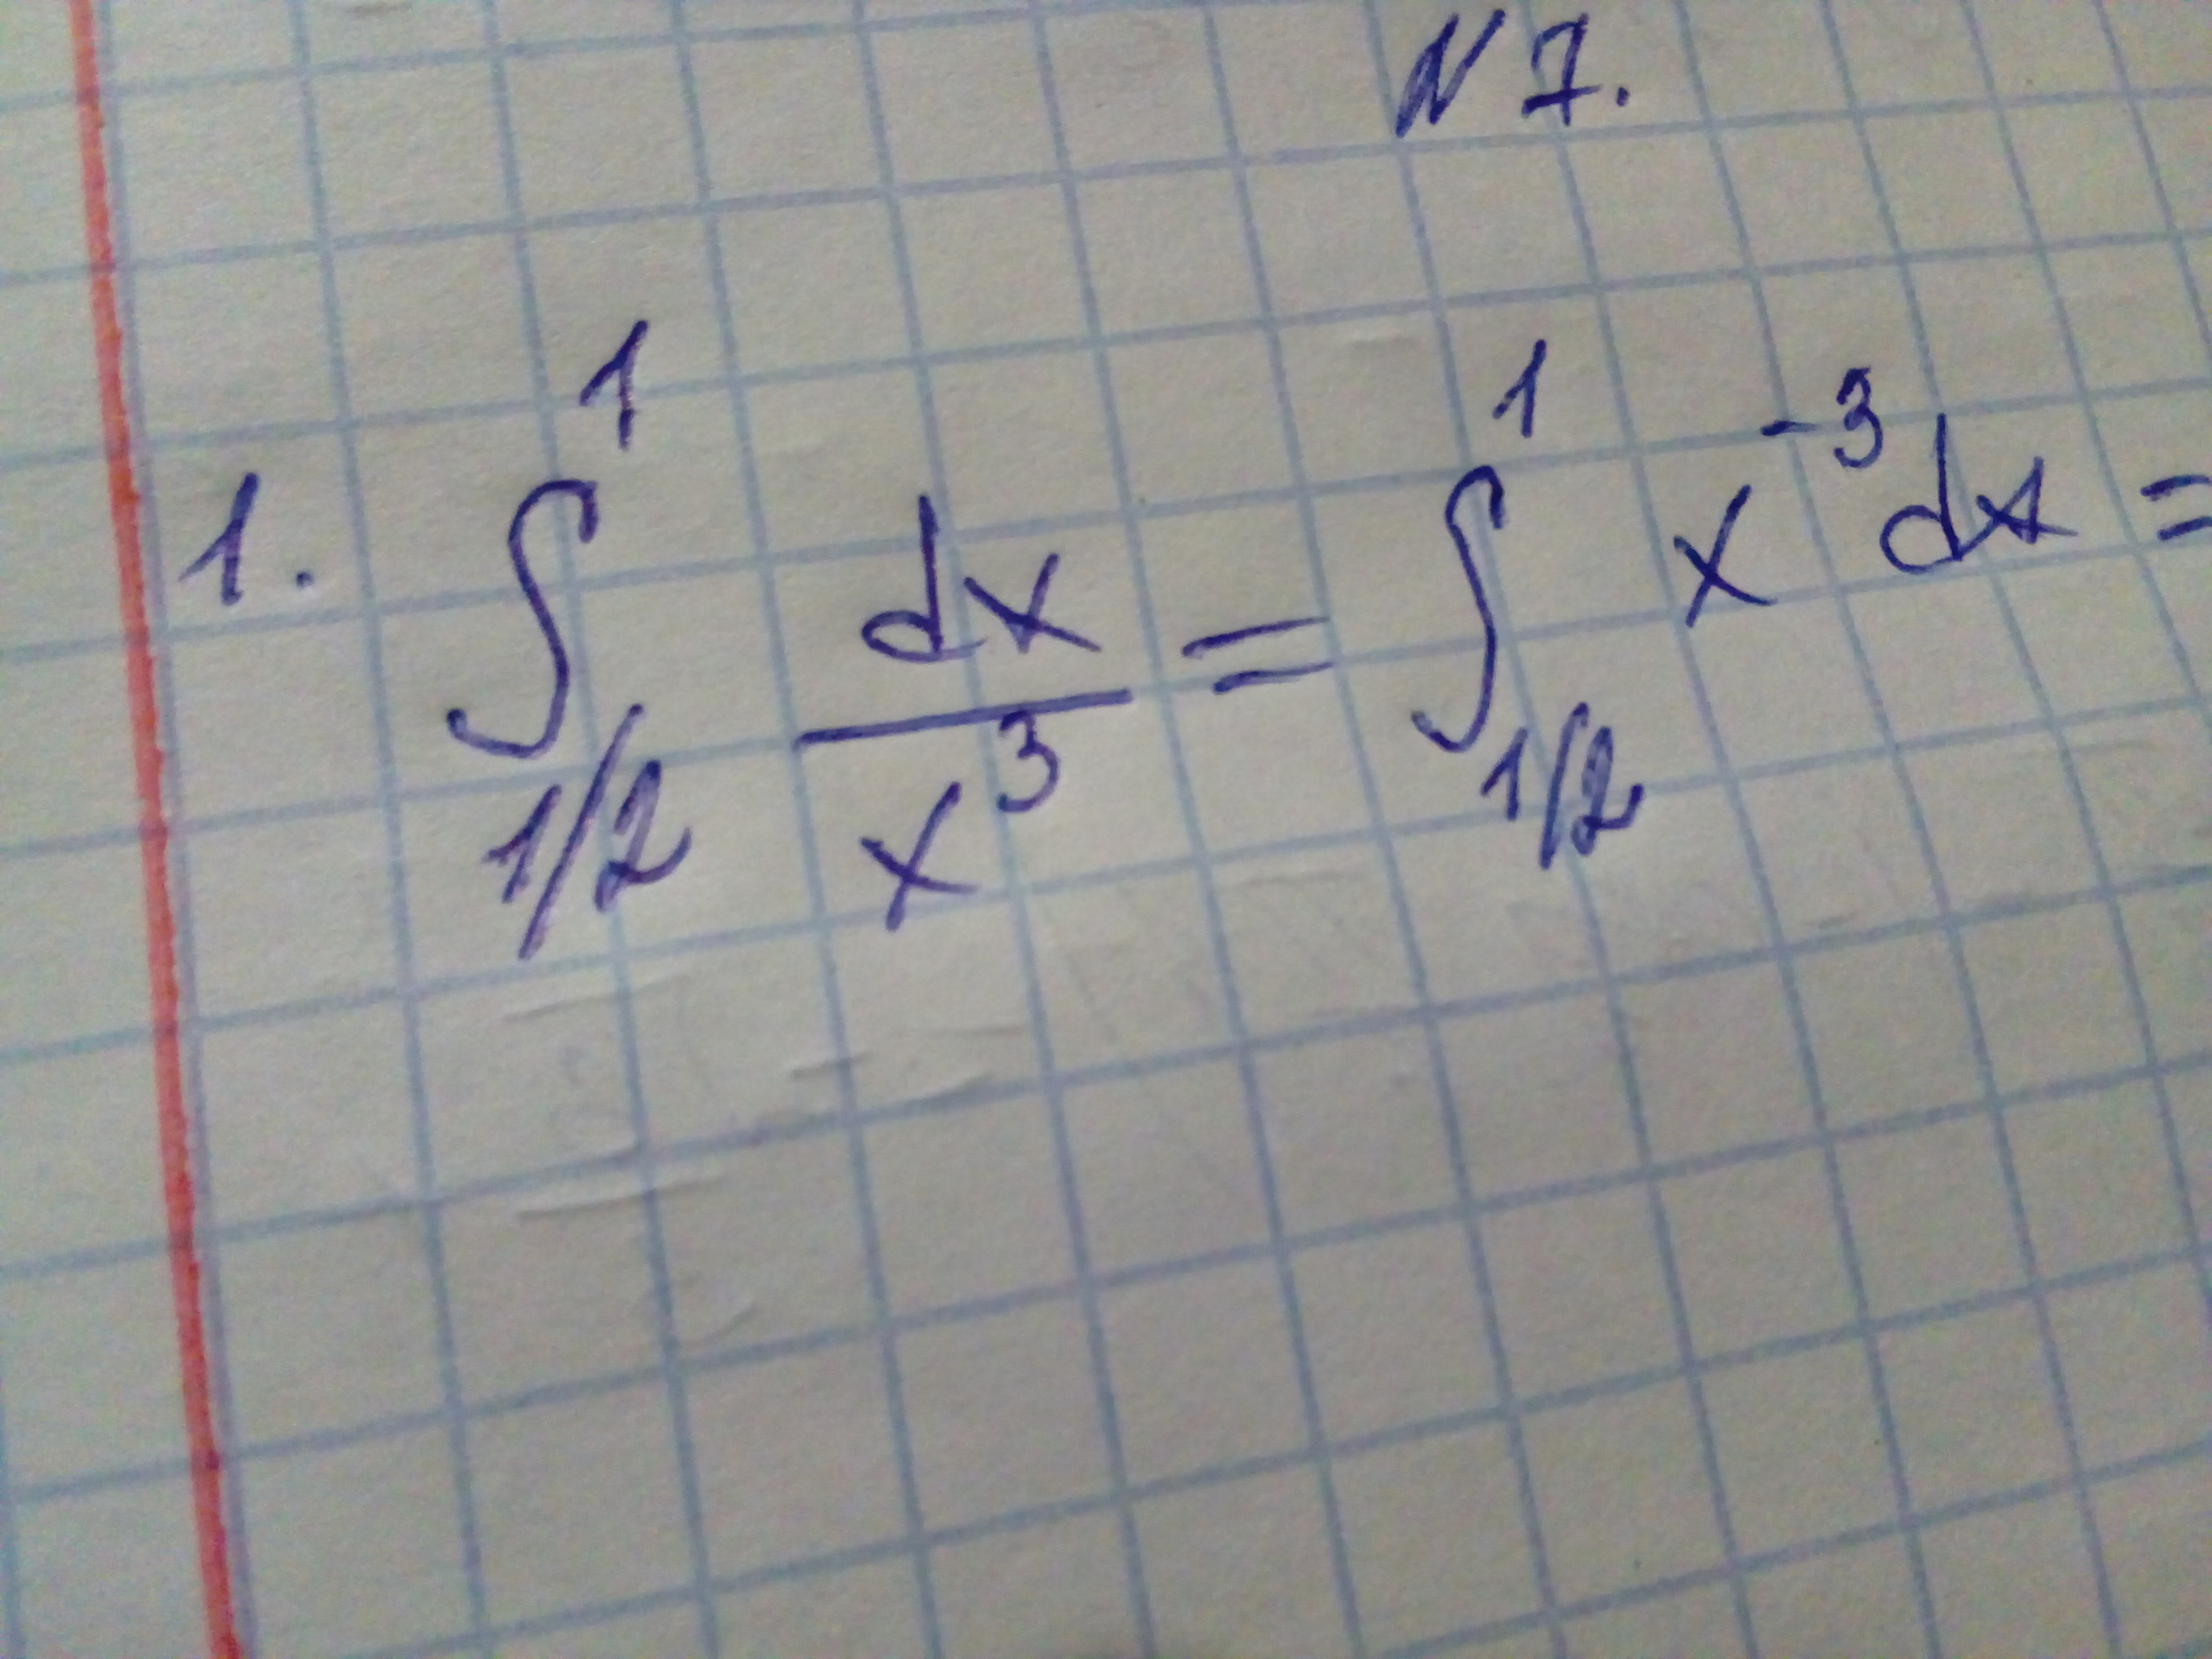 N 7.
1. ∫_{1/2}^{1} dx/x³ = ∫_{1/2}^{1} x⁻³dx =